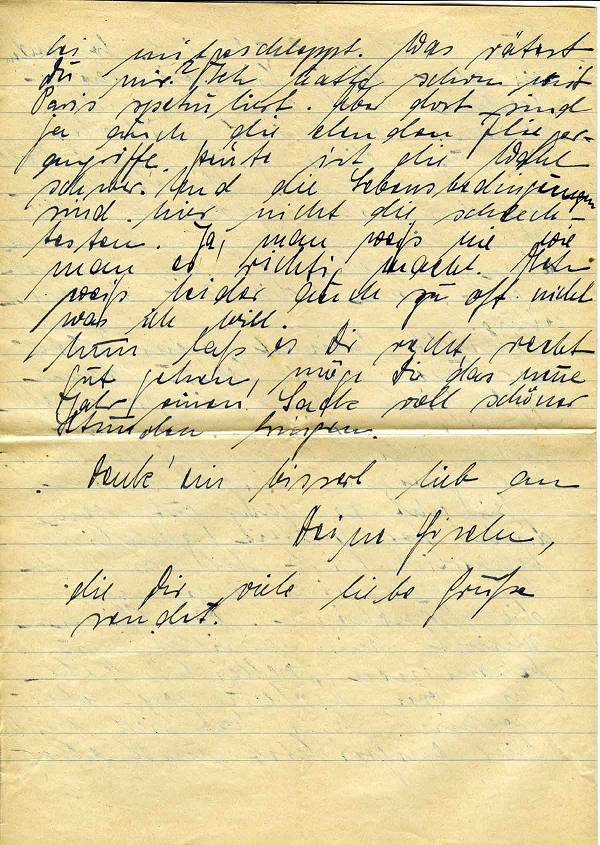 bei mir mitgeschleppt. Was rätest
Du mir? Ich hatte schon mit
Paris spekuliert. Aber dort sind
ja auch die elenden Flieger-
angriffe. Heute ist die Wahl
schwer. Und die Lebensbedingungen
sind hier nicht die schlech-
testen. Ja, man weiß nie wie
man es richtig macht. Ich
weiß leider auch zu oft nicht
was ich will.
Nun laß es Dir recht recht
gut gehen, möge Dir das neue
Jahr einen Sack voll schöner
Stunden bringen.
Denk' ein bisserl lieb an
Deine Gisela,
die Dir viele liebe Grüße
sendet.